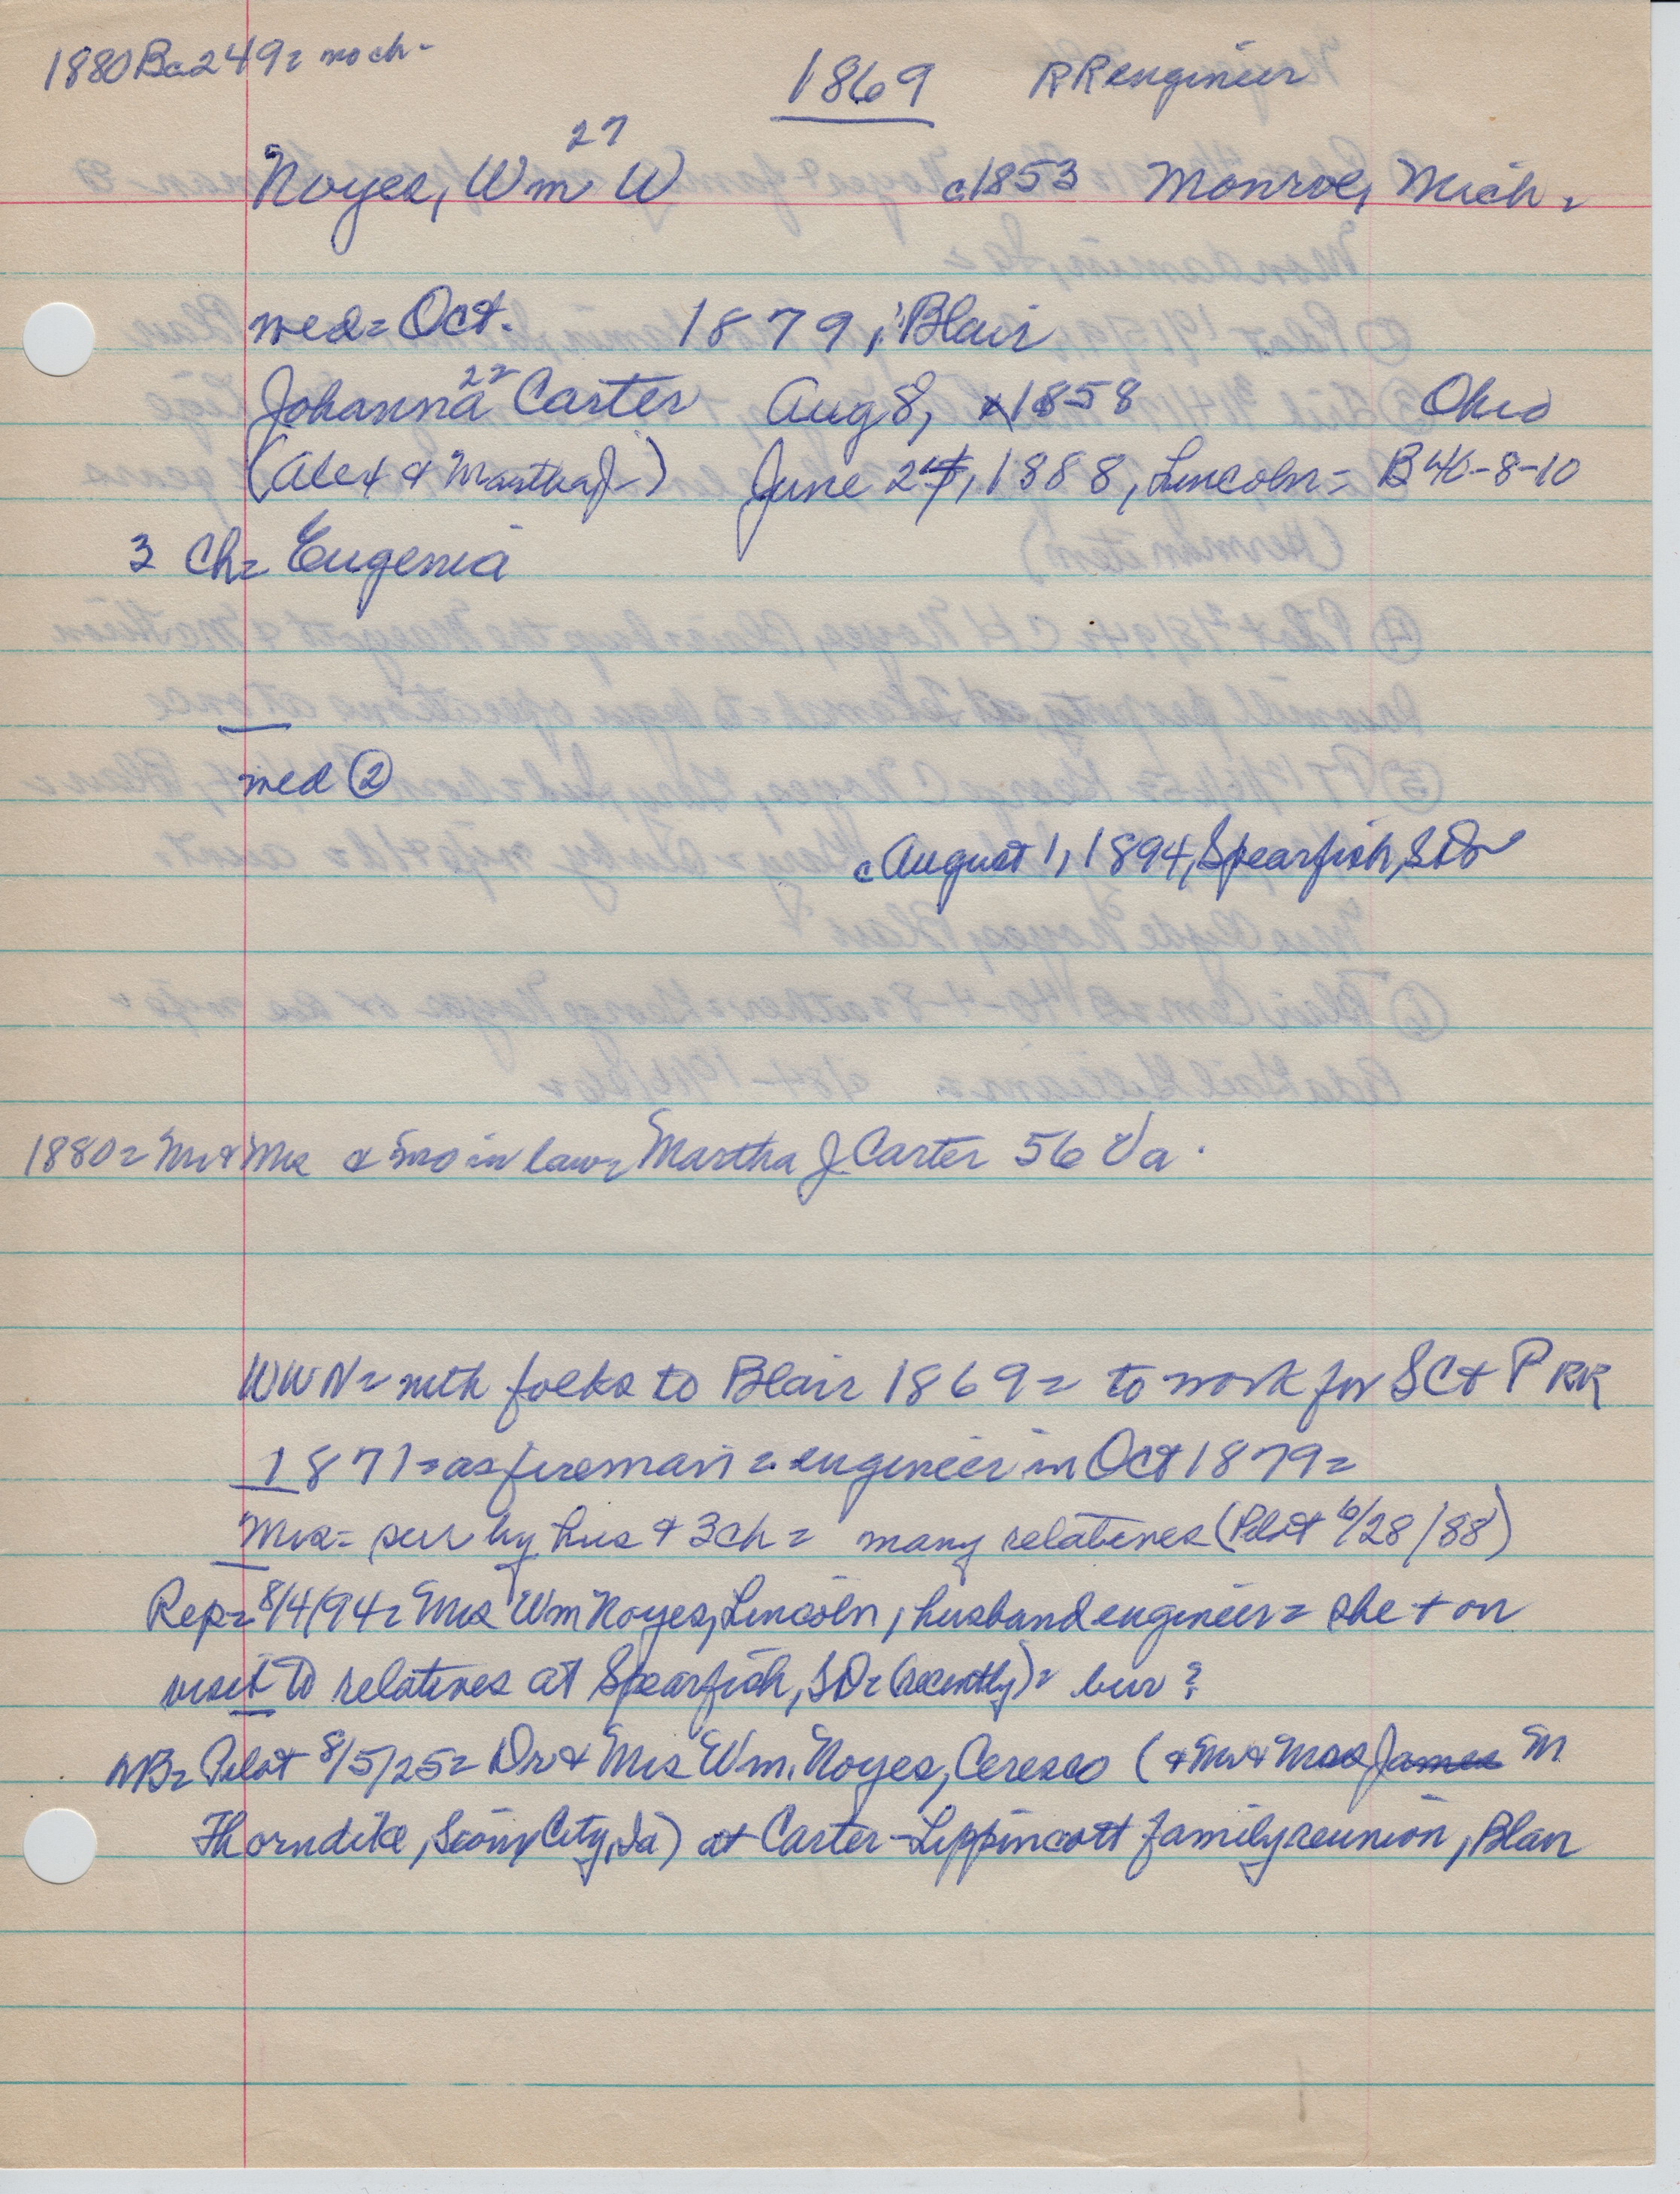 1880 Ba249= no ch-
1869 RR engineer
27
Noyes, Wm W c1853 Monroe, Mich.
wed= Oct. 1879, Blair
22
Johanna Carter Aug 8, 1858 Ohio
(Alex & Martha J-) June 24, 1888, Lincoln= B 46-8-10
3 Ch= Eugenia
wed ②
c August 1, 1894, Spearfish, SD
1880= Mr & Mrs & mo in law= Martha J Carter 56 Va.
WWN= with folks to Blair 1869= to work for SC & P RR
1871= as fireman= engineer in Oct 1879=
Mrs= sur by hus & 3 ch= many relatives (Pilot 6/28/88)
Rep= 8/4/94= Mrs Wm Noyes, Lincoln, husband engineer= she + on
visit to relatives at Spearfish, SD= (recently)= bur?
NB= Pilot 8/5/25= Dr & Mrs Wm. Noyes, Ceresco (& Mr & Mrs James M
Thorndike, Sioux City, Ia) at Carter-Lippincott family reunion, Blair